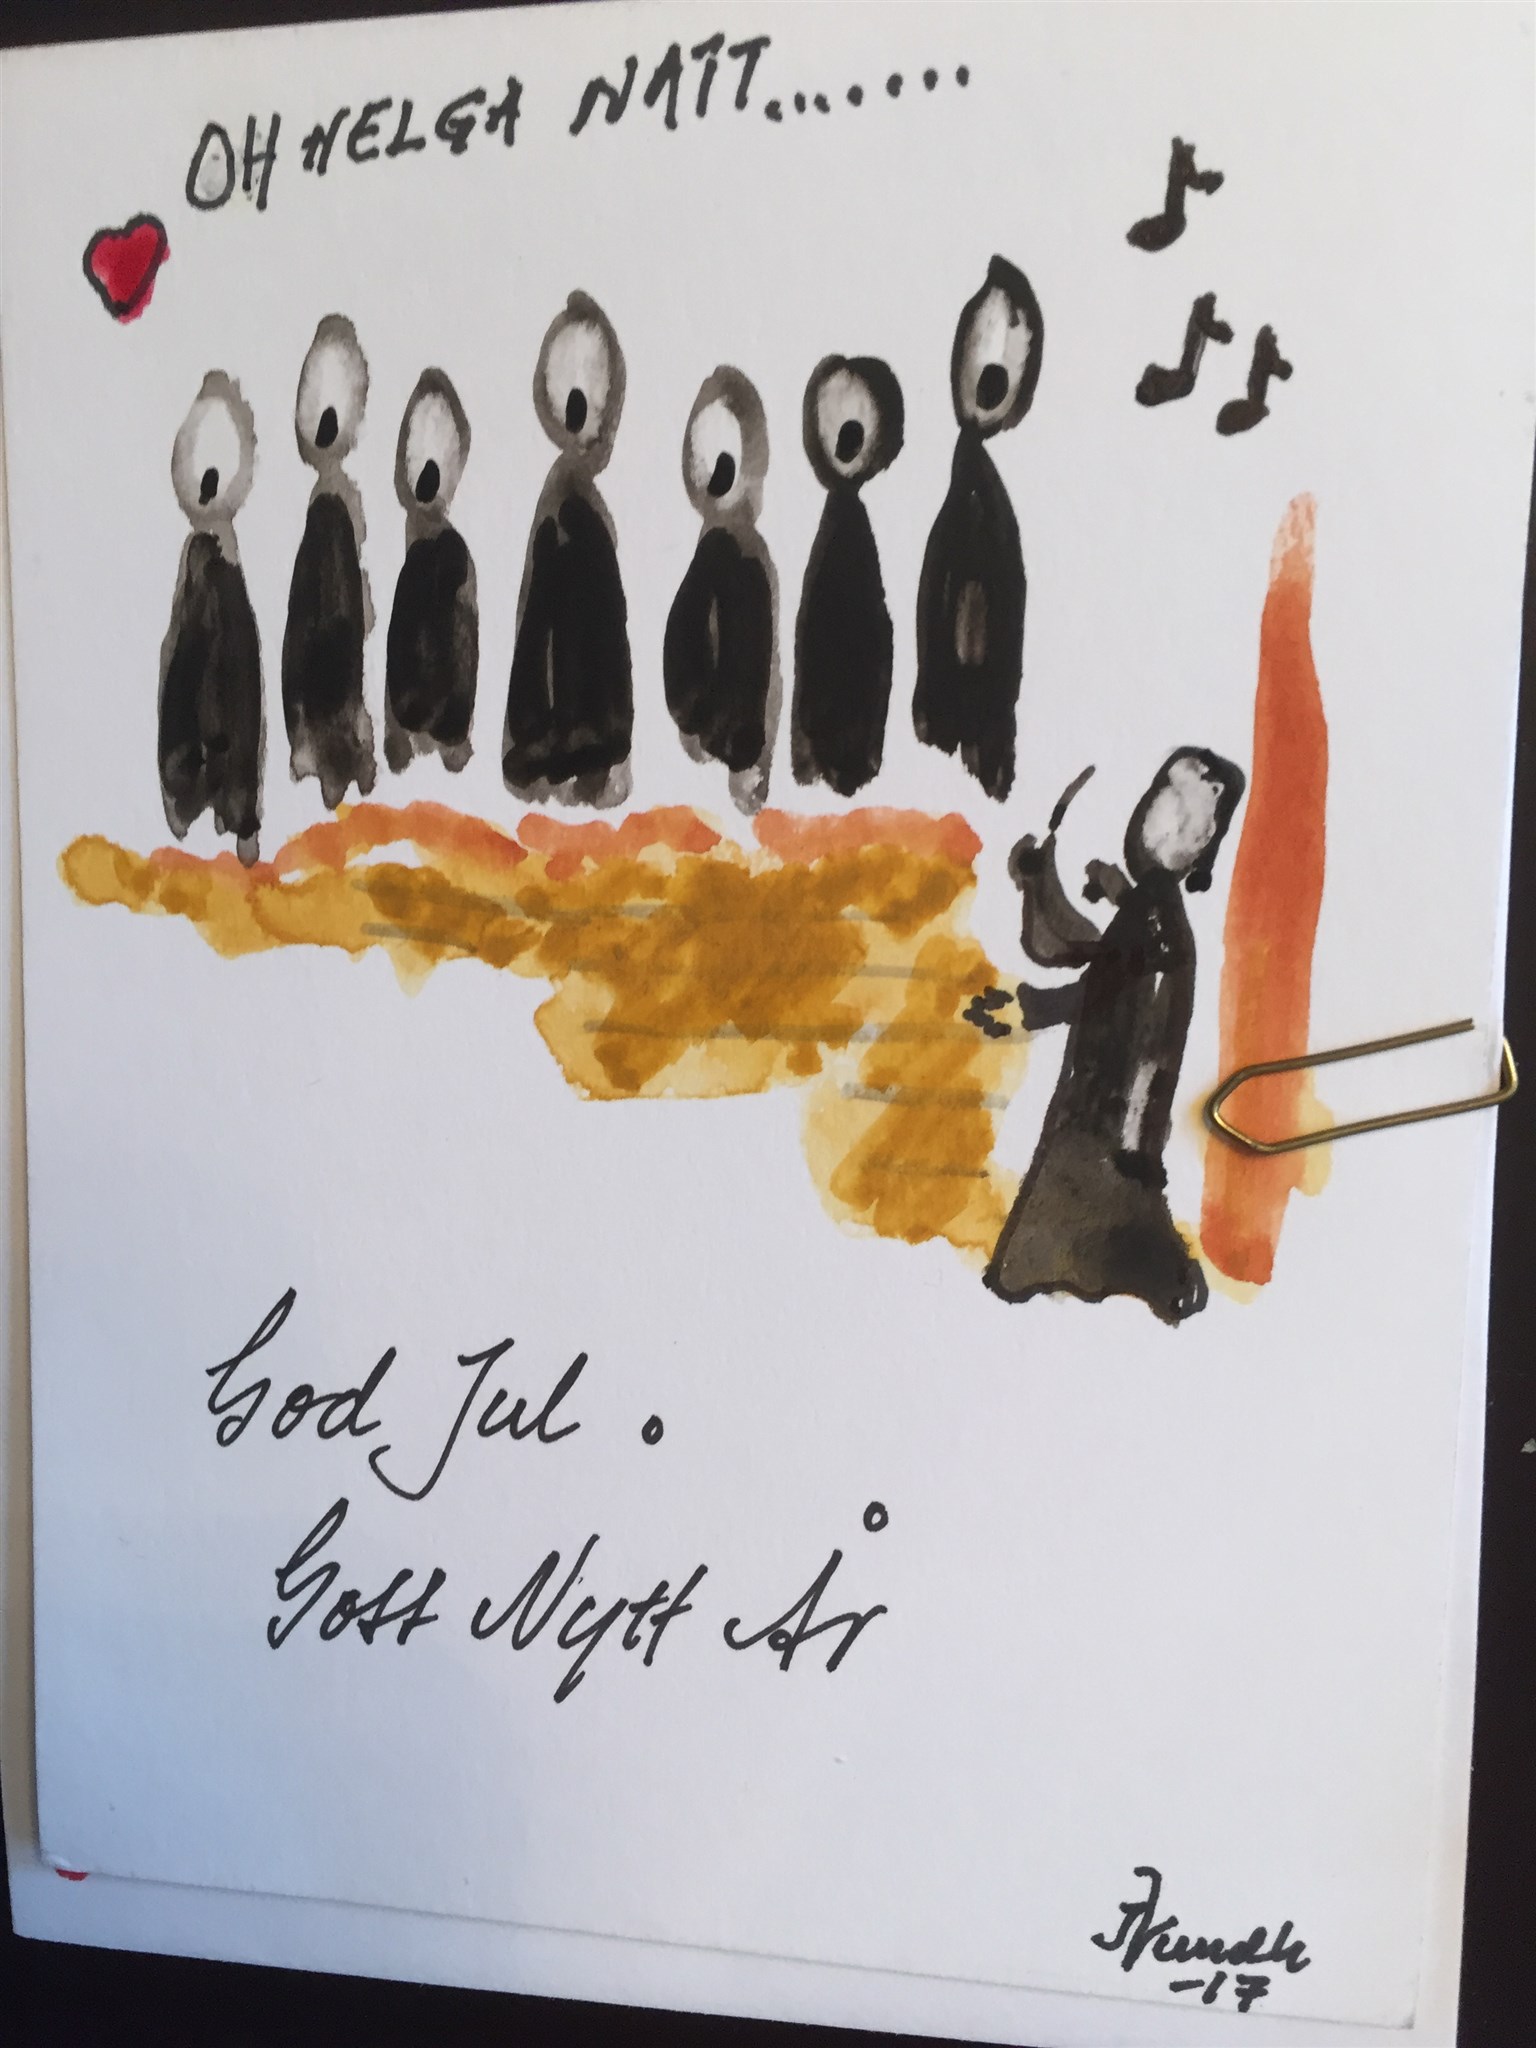 OH HELGA NATT.........
God Jul.
Gott Nytt År
-17